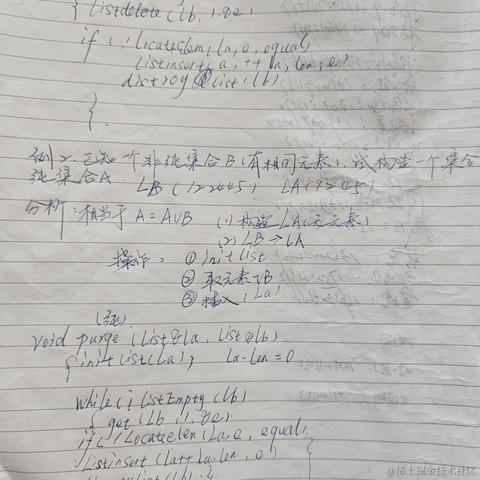 { Listdelete (lb, 1, &e)
if (! LocateElem (La, e, equal)
Listinsert (a, ++ a, len, e)
distroy list (lb)
}
例2. 已知一个非纯集合B(有相同元素), 试构造一个集合
纯集合A LB (122445) LA(1245)
分析: 相当于 A=A∪B (1) 构造LA(无元素)
(2) LB → LA
操作: ① init List
② 取元素 LB
③ 插入 (La)
void purge (List &la, List &lb)
{ init List (La); La-len = 0
while (! listEmpty (lb)
{ get (Lb, 1, &e)
if (! Locateelem (La, e, equal)
Listinsert (La ++ La-len, e)
@稀土掘金技术社区